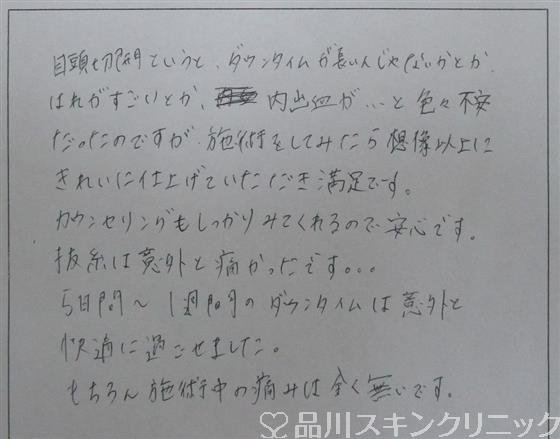 目頭切開というと、ダウンタイムが長いんじゃないかとか、
はれがすごいとか、内出血が…と色々不安
だったのですが、施術をしてみたら想像以上に
きれいに仕上げていただき満足です。
カウンセリングもしっかりみてくれるので安心です。
抜糸は意外と痛かったです。。。
5日間〜1週間のダウンタイムは意外と
快適に過ごせました。
もちろん施術中の痛みは全く無いです。
品川スキンクリニック